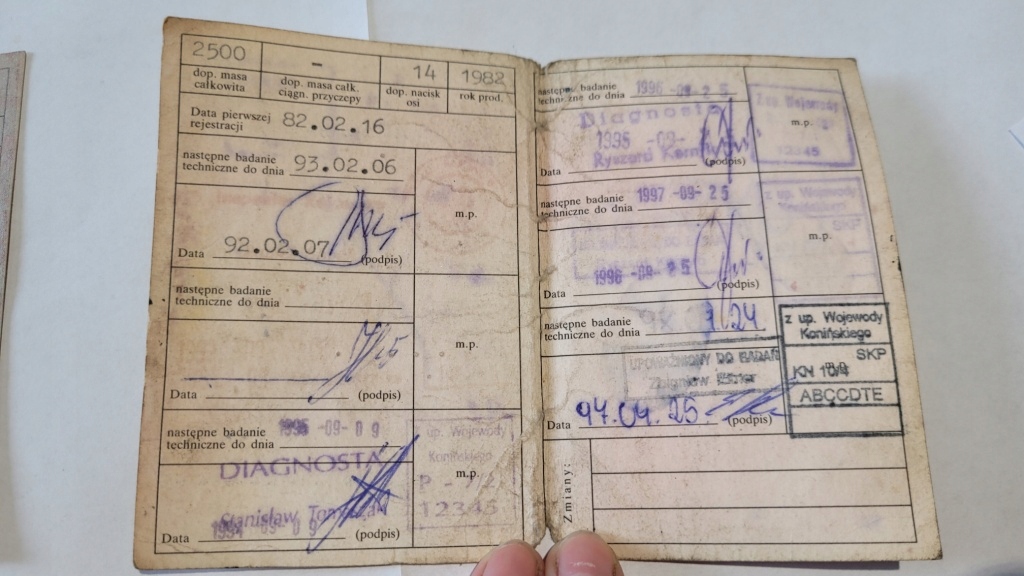 2500 - 14 1982
dop. masa całkowita
dop. masa całk. ciągn. przyczepy
dop. nacisk osi
rok prod.
Data pierwszej
rejestracji 82.02.16
następne badanie
techniczne do dnia 93.02.06
m.p.
Data 92.02.07
(podpis)
następne badanie
techniczne do dnia
m.p.
Data (podpis)
następne badanie
techniczne do dnia 1995 -09- 09
up. Wojewody
Konińskiego
DIAGNOSTA
m.p.
P
12345
Stanisław
Data 1994 -09- 09 (podpis)
następne badanie
techniczne do dnia 1996 -09- 25
Diagnosta
z up. Wojewody
m.p.
1995 -09-
Ryszard
12345
Data (podpis)
następne badanie
techniczne do dnia 1997 -09- 25
z up. Wojewody
SKP
m.p.
1996 -09- 25
Data (podpis)
następne badanie
techniczne do dnia 9.24
z up. Wojewody
Konińskiego
SKP
KN
ABCCDTE
UPOWAŻNIONY DO BADAŃ
Zbigniew
Data 97.09.25. (podpis)
Zmiany: